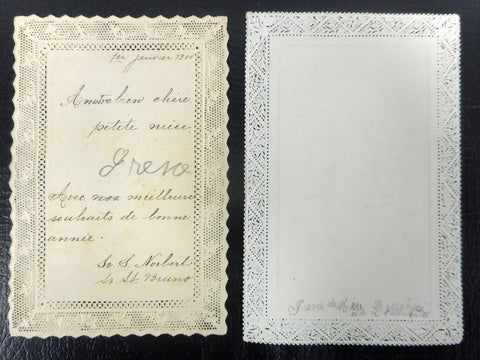 1er janvier 1900
A notre bien chère
petite nièce
Irene
Avec nos meilleurs
souhaits de bonne
année -
Sr. S. Norbert
Sr. St. Bruno